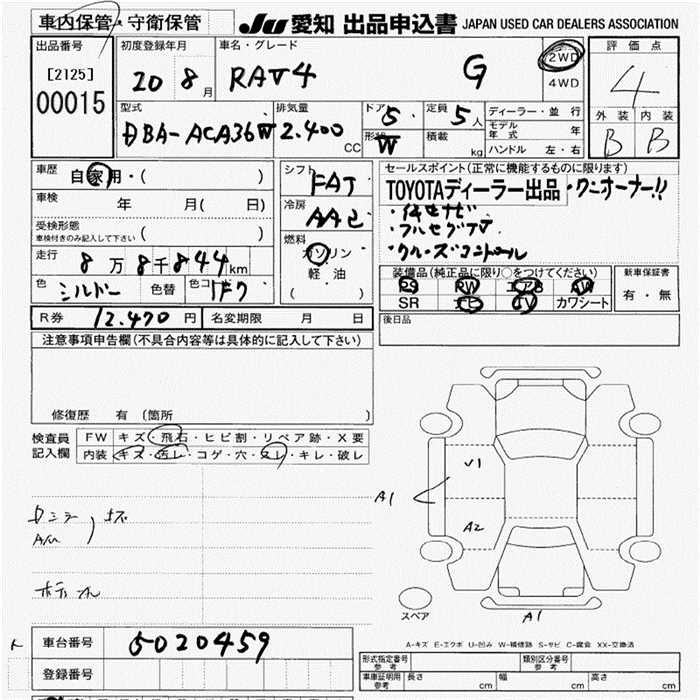 車内保管・守衛保管
JU 愛知 出品申込書 JAPAN USED CAR DEALERS ASSOCIATION
出品番号
[2125]
00015
初度登録年月
20 8月
車名・グレード
RAV4 G
2WD
4WD
評価点
4
外装 内装
B B
型式
DBA-ACA36W
排気量
2.400 CC
ドア 5
形状 W
定員 5人
積載 kg
ディーラー・並行
モデル年式 年
ハンドル 左・右
車歴
自家用・( )
車検 年 月( 日)
受検形態
車検付きのみ記入して下さい ( )
走行
8万8千844km
色 シルバー 色替 色コード 1F7
シフト FAT
冷房 AAC
燃料
ガソリン
軽油
( )
セールスポイント(正常に機能するものに限ります)
TOYOTAディーラー出品・ワンオーナー!!
・フルセグTV
・クルーズコントロール
装備品(純正品に限り○をつけてください)
PS PW エアB AW
SR ナビ TV カワシート
新車保証書
有・無
R券 12.470円 名変期限 月 日
後日品
注意事項申告欄(不具合内容等は具体的に記入して下さい)
修復歴 有 (箇所 )
検査員記入欄
FW キズ・飛石・ヒビ割・リペア跡・X要
内装 キズ・汚レ・コゲ・穴・スレ・キレ・破レ
V1
A1
A2
A1
スペア
A-キズ E-エクボ U-凹み W-補修跡 S-サビ C-腐食 XX-交換済
車台番号 5020459
登録番号
形式指定番号 参考
類別区分番号 参考
車庫証明用 参考 長さ cm 幅 cm 高さ cm